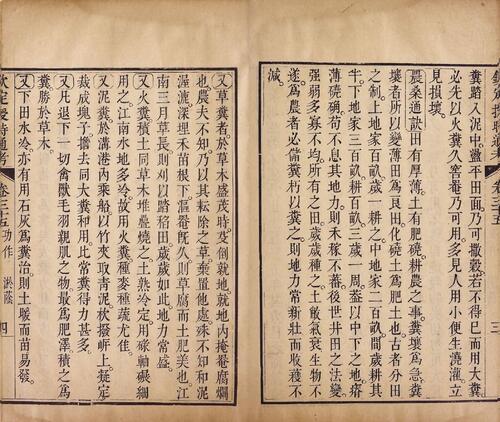 糞踏入泥中盪平田面乃可撒穀若不得已而用大糞
必先以火糞久窖罨乃可用多見人用小便生澆灌立
見損壞。
農桑通訣田有厚薄土有肥磽耕農之事糞壤爲急糞
壤者所以變薄田爲良田化磽土爲肥土也古者分田
之制上地家百畝歲一耕之中地家二百畝間歲耕其
半下地家三百畝歲耕百畝三歲一周葢以中下之地瘠
薄磽确苟不息其地力則禾稼不蕃後世井田之法變
強弱多寡不均所有之田歲歲種之土敝氣衰生物不
遂爲農者必儲糞朽以糞之則地力常新壯而收穫不
減。
又草糞者於草木盛茂時芟倒就地就地內掩罨腐爛
也農夫不知乃以其耘除之草棄置他處殊不知和泥
渥漉深埋禾苗根下漚罨既久則草腐而土肥美也江
南三月草長則刈以踏稻田歲歲如此地力常盛。
又火糞積土同草木堆疊燒之土熟冷定用碌軸碾細
用之江南水地多冷故用火糞種麥種蔬尤佳。
又泥糞於溝港內乘船以竹夾取青泥杴撥岸上凝定
裁成塊子擔去同大糞和用比常糞得力甚多。
又凡退下一切禽獸毛羽親肌之物最爲肥澤積之爲
糞勝於草木。
又下田水冷亦有用石灰爲糞治則土暖而苗易發。
欽定授時通考 卷三十五 功作 淤蔭 四